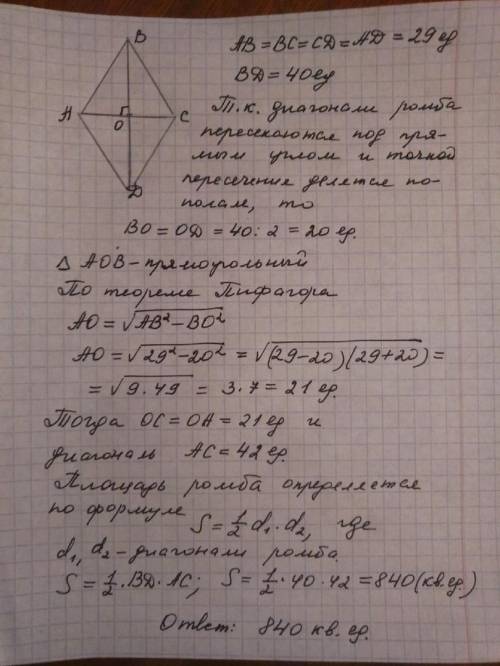 B
A
C
O
D
AB = BC = CD = AD = 29 ед
BD = 40 ед
Т.к. диагонали ромба
пересекаются под пря-
мым углом и точкой
пересечение делятся по-
полам, то
BO = OD = 40 : 2 = 20 ед.
Δ AOB - прямоугольный
По теореме Пифагора
AO = √AB² - BO²
AO = √29² - 20² = √(29-20)(29+20) =
= √9·49 = 3·7 = 21 ед.
Тогда OC = OA = 21 ед и
диагональ AC = 42 ед.
Площадь ромба определяется
по формуле S = 1/2 d₁·d₂, где
d₁, d₂ - диагонали ромба
S = 1/2·BD·AC; S = 1/2·40·42 = 840 (кв.ед.)
Ответ: 840 кв. ед.